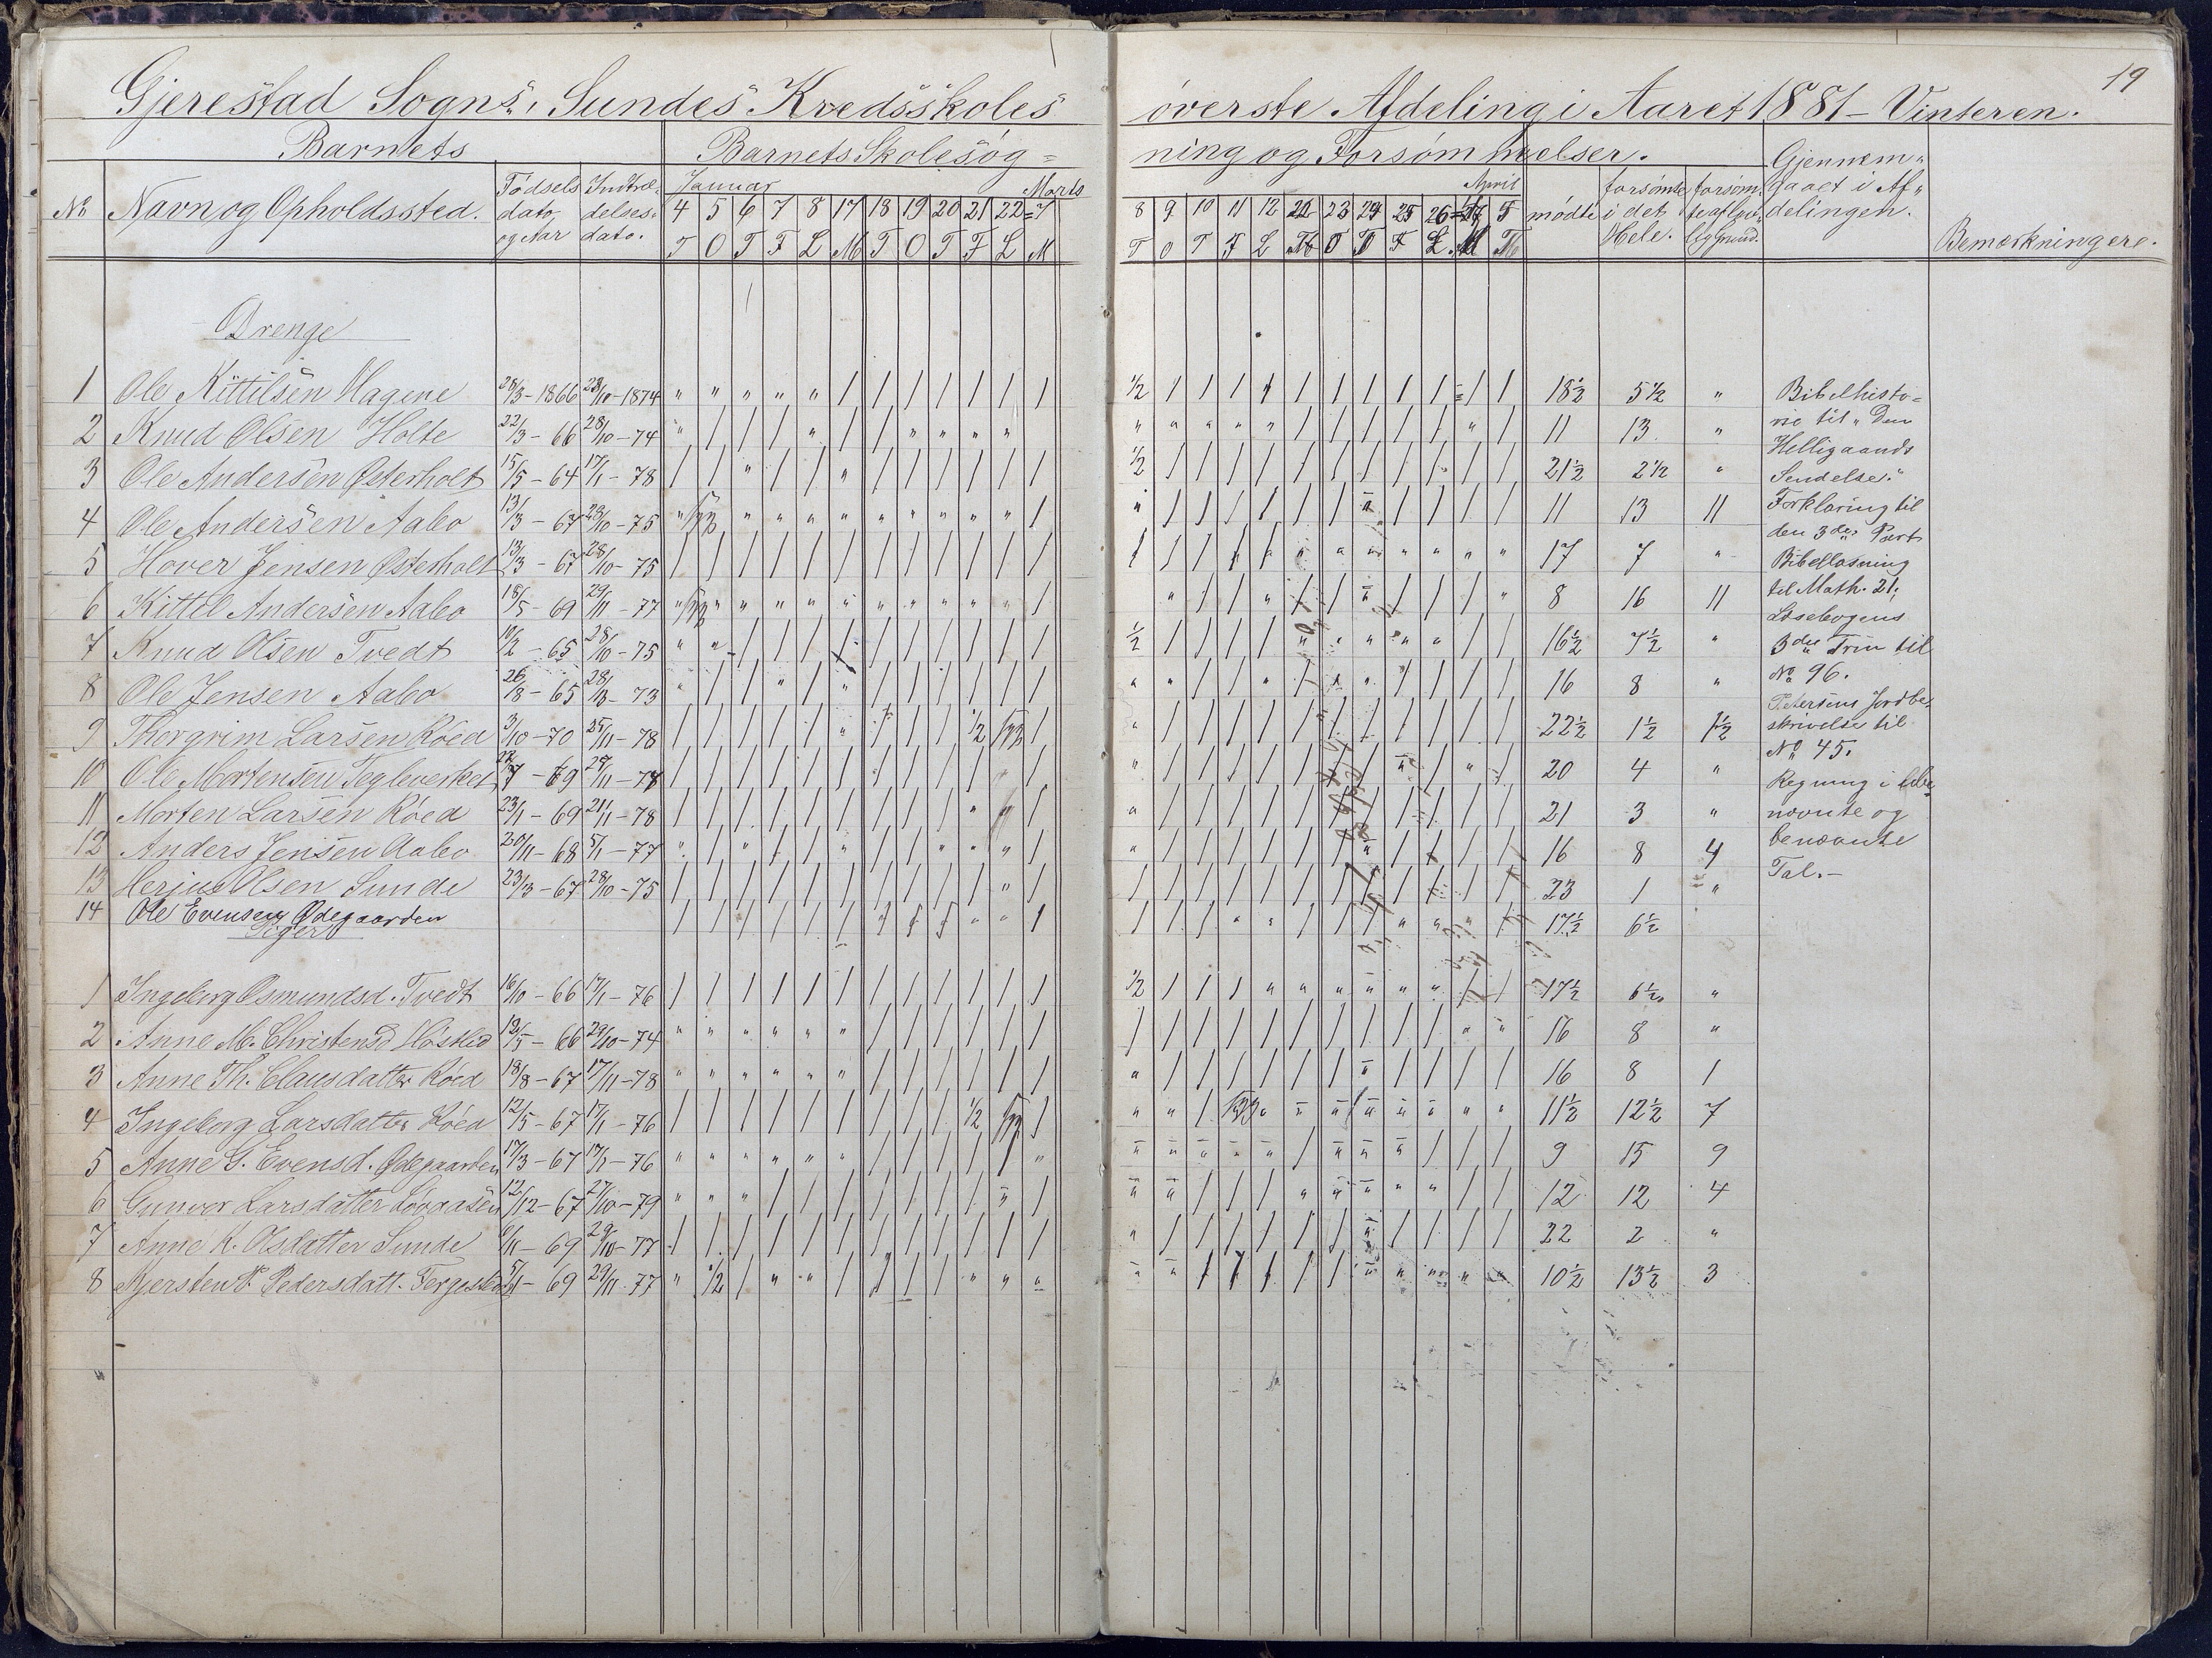 19
Gjerestad Sogns, Sundes Kredsskoles øverste Afdeling i Aaret 1881 - Vinteren.
Barnets Barnets Skolesøg= ning og Forsømmelser.
No Navn og Opholdssted. Fødsels dato, og Aar Indtræ- delses- dato. Januar Marts April mødte forsømte i det Hele. forsøm- te af lov- lig Grund. Gjennem- gaaet i Af- delingen. Bemærkninger.
4 5 6 7 8 17 18 19 20 21 22 7 8 9 10 11 12 22 23 24 25 26 4 5
T O T F L M T O T F L M T O T F L T O T F L M T
Drenge
1 Ole Kittilsen Hagene 28/3-1866 28/10-1874 18½ 5½ "
2 Knud Olsen Holte 22/3-66 28/10-74 11 13 "
3 Ole Andersen Østerholt 15/5-64 17/1-78 21½ 2½ "
4 Ole Andersen Aabo 13/3-67 28/10-75 11 13 11
5 Hover Jensen Østerholt 13/3-67 28/10-75 17 7 "
6 Kittel Andersen Aabo 18/5-69 29/11-77 8 16 11
7 Knud Olsen Tvedt 10/2-65 28/10-75 16½ 7½ "
8 Ole Jensen Aabo 26/8-65 73 16 8 "
9 Thorgrim Larsen Röed 3/10-70 25/11-78 22½ 1½ 1½
10 Ole Mortensen Tegleverket 69 78 20 4 "
11 Morten Larsen Röed 23/1-69 21/11-78 21 3 "
12 Anders Jensen Aabo 20/11-68 5/1-77 16 8 4
13 Herjus Olsen Sunde 23/3-67 28/10-75 23 1 "
14 Ole Evensen Ødegaarden 17½ 6½
Piger
1 Ingeborg Osmundsd. Tvedt 16/10-66 17/1-76 17½ 6½ "
2 Anne M. Christensd 12/5-66 29/10-74 16 8 "
3 Anne Th. Clausdatter Röed 18/8-67 17/11-78 16 8 1
4 Ingeborg Larsdatter Röed 12/5-67 17/1-76 11½ 12½ 7
5 Anne G. Evensd. Ødegaarden 17/3-67 17/1-76 9 15 9
6 Gunvor Larsdatter 12/12-67 27/10-79 12 12 4
7 Anne K. Olsdatter Sunde 6/11-69 29/10-77 22 2 "
8 Kjersten P. Pedersdatt. 69 29/11-77 10½ 13½ 3
Bibelhisto=
rie til "Den
Helligaands
Sendelse."
Forklaring til
den 3die Part
Bibellæsning
til Math. 21,
Læsebogens
3die Trin til
No 96.
Petersens Jordbe-
skrivelse til
No 45.
Regning i ube-
nævnte og
benævnte
Tal.-